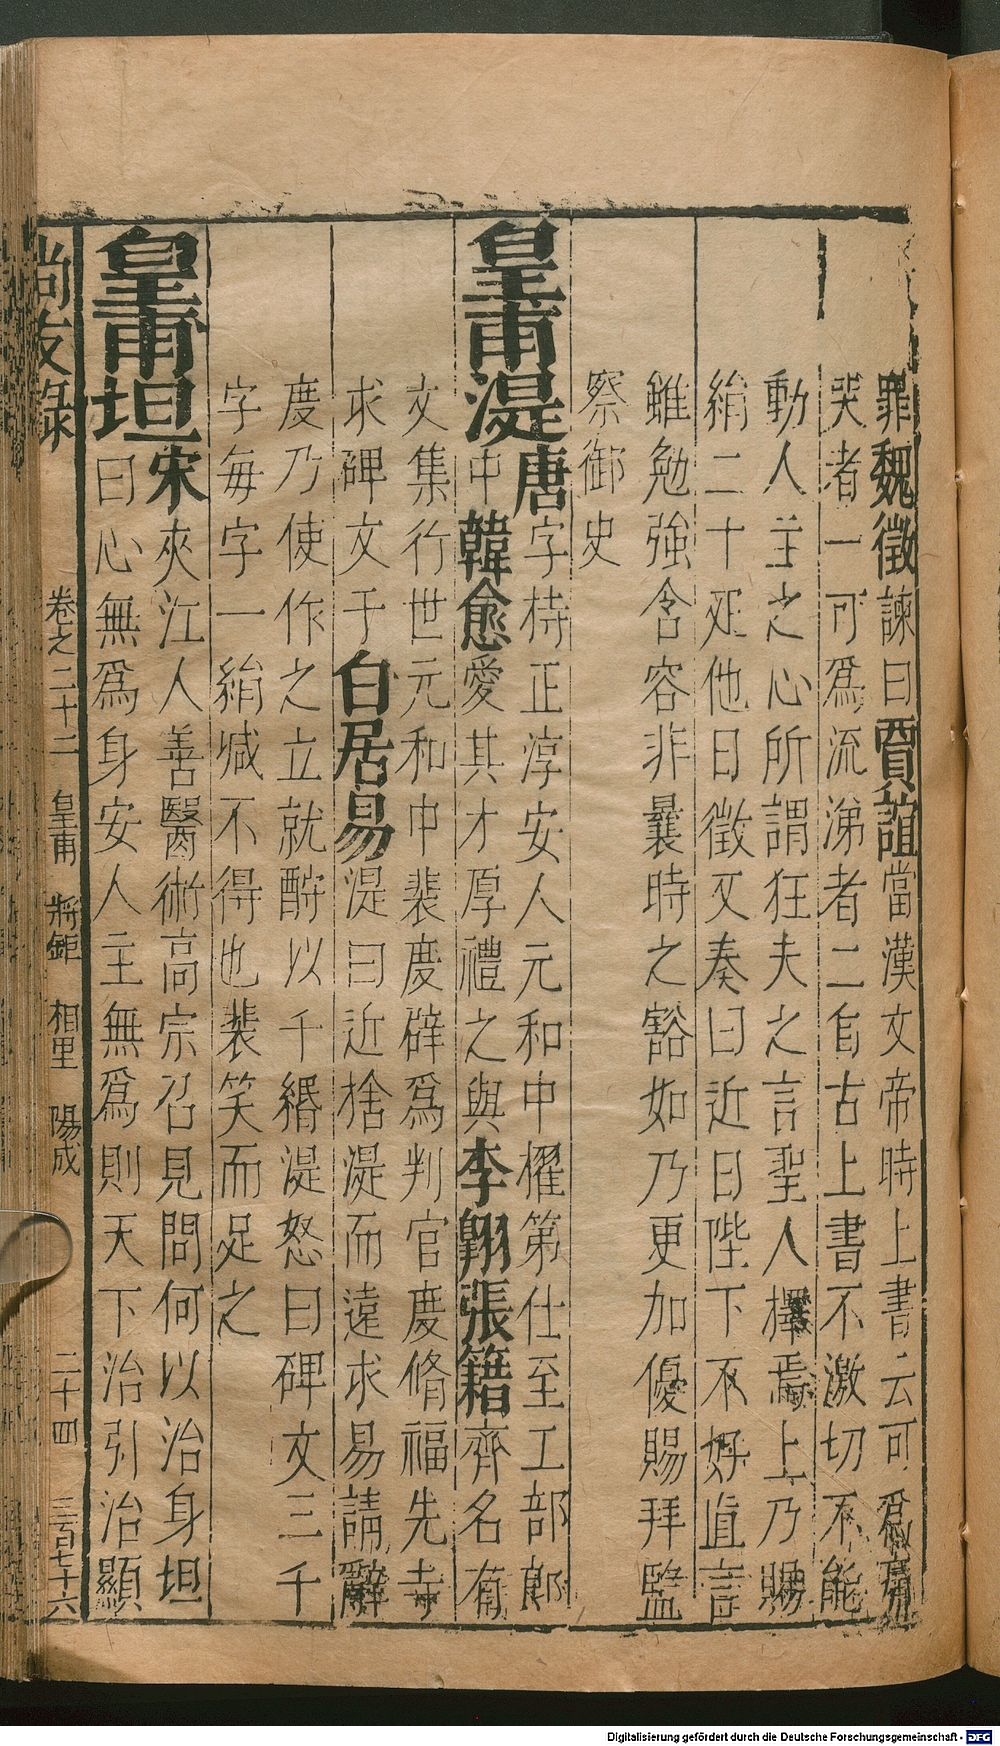 罪魏徵諫曰賈誼當漢文帝時上書云可爲痛
哭者一可爲流涕者二自古上書不激切不能
動人主之心所謂狂夫之言聖人擇焉上乃賜
絹二十疋他日徵又奏曰近日陛下不好直言
雖勉強含容非曩時之豁如乃更加優賜拜監
察御史
皇甫湜唐字持正淳安人元和中櫂第仕至工部郎
中韓愈愛其才厚禮之與李翱張籍齊名有
文集行世元和中裴度辟爲判官度脩福先寺
求碑文于白居易湜曰近捨湜而遠求易請辭
度乃使作之立就酧以千緡湜怒曰碑文三千
字每字一絹減不得也裴笑而足之
皇甫坦宋夾江人善醫術高宗召見問何以治身坦
曰心無爲身安人主無爲則天下治引治顯
尚友錄 卷之二十二 皇甫 將鉅 相里 陽成 二十四 三百七十六
Digitalisierung gefördert durch die Deutsche Forschungsgemeinschaft - DFG